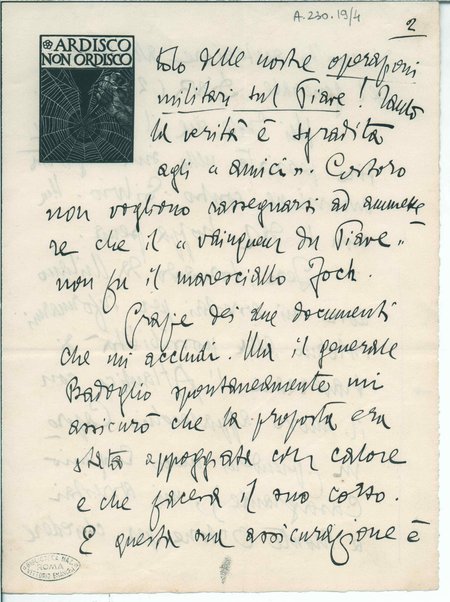 A.230.19/4
2
ARDISCO
NON ORDISCO
solo delle nostre operazioni
militari sul Piave! Tanto
la verità è sgradita
agli «amici». Costoro
non vogliono rassegnarsi ad ammette
re che il «vainqueur du Piave»
non fu il maresciallo Foch.
Grazie dei due documenti
che mi accludi. Ma il generale
Badoglio spontaneamente mi
assicurò che la proposta era
stata appoggiata con calore
e che faceva il suo corso.
E questa sua assicurazione è
BIBLIOTECA NAZ.
ROMA
VITTORIO EMANUELE